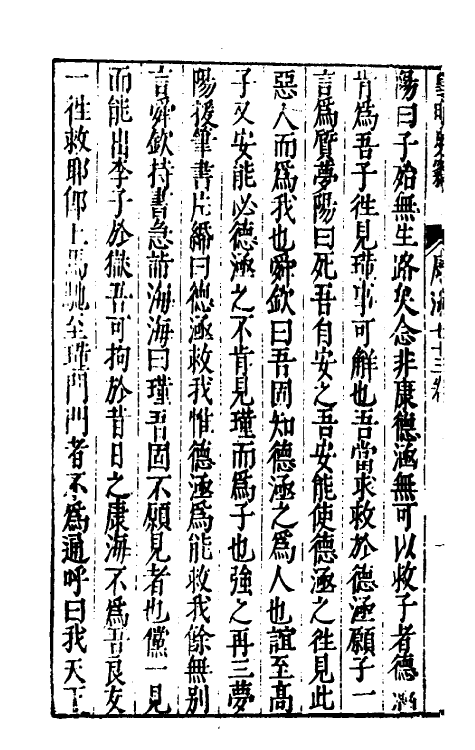 皇明史竊　康海七十三卷
陽曰子殆無生路矣念非康德涵無可以救子者德涵
肯為吾子徃見瑾事可解也吾當求救於德涵願子一
言為質夢陽曰死吾自安之吾安能使德涵之徃見此
惡人而為我也舜欽曰吾固知德涵之為人也誼至高
子又安能必德涵之不肯見瑾而為子也強之再三夢
陽援筆書片紙曰德涵救我惟德涵為能救我餘無別
言舜欽持書急詣海海曰瑾吾固不願見者也儻一見
而能出李子於獄吾可拘於昔日之康海不為吾良友
一徃救耶即上馬馳至瑾門門者不為通呼曰我天下